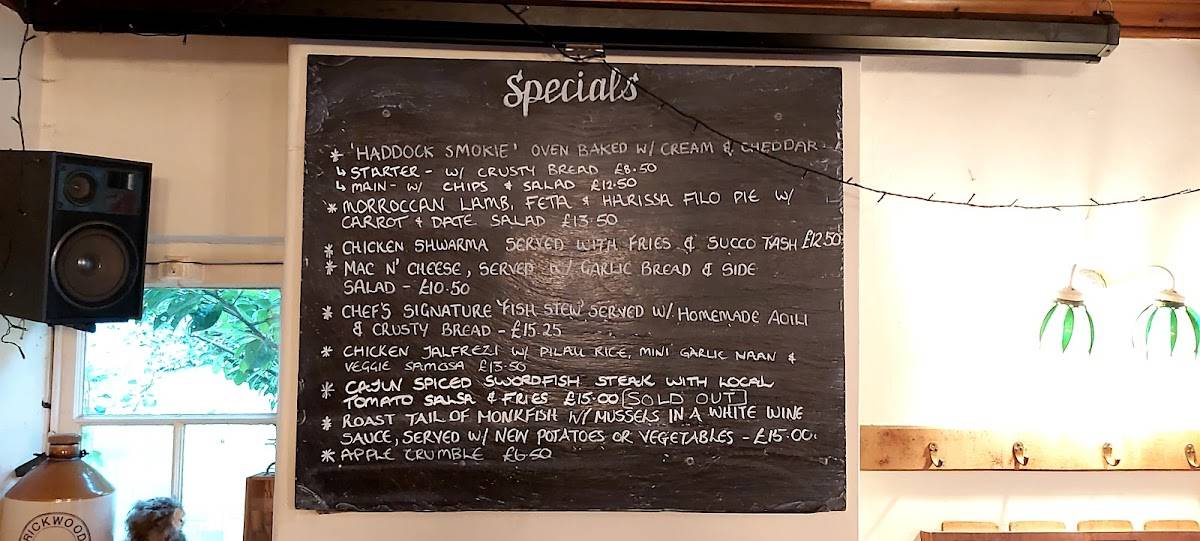 Specials
* 'HADDOCK SMOKIE' OVEN BAKED W/ CREAM & CHEDDAR.
↳ STARTER - W/ CRUSTY BREAD £8.50
↳ MAIN - W/ CHIPS & SALAD £12.50
* MORROCCAN LAMB, FETA & HARISSA FILO PIE W/
CARROT & DATE SALAD £13.50
* CHICKEN SHWARMA SERVED WITH FRIES & SUCCO TASH £12.50
* MAC N' CHEESE, SERVED W/ GARLIC BREAD & SIDE
SALAD - £10.50
* CHEF'S SIGNATURE 'FISH STEW' SERVED W/ HOMEMADE AOILI
& CRUSTY BREAD - £15.25
* CHICKEN JALFREZI W/ PILAU RICE, MINI GARLIC NAAN &
VEGGIE SAMOSA £13.50
* CAJUN SPICED SWORDFISH STEAK WITH LOCAL
TOMATO SALSA & FRIES £15.00 [SOLD OUT]
* ROAST TAIL OF MONKFISH W/ MUSSELS IN A WHITE WINE
SAUCE, SERVED W/ NEW POTATOES OR VEGETABLES - £15.00.
* APPLE CRUMBLE £6.50
RICKWOOD